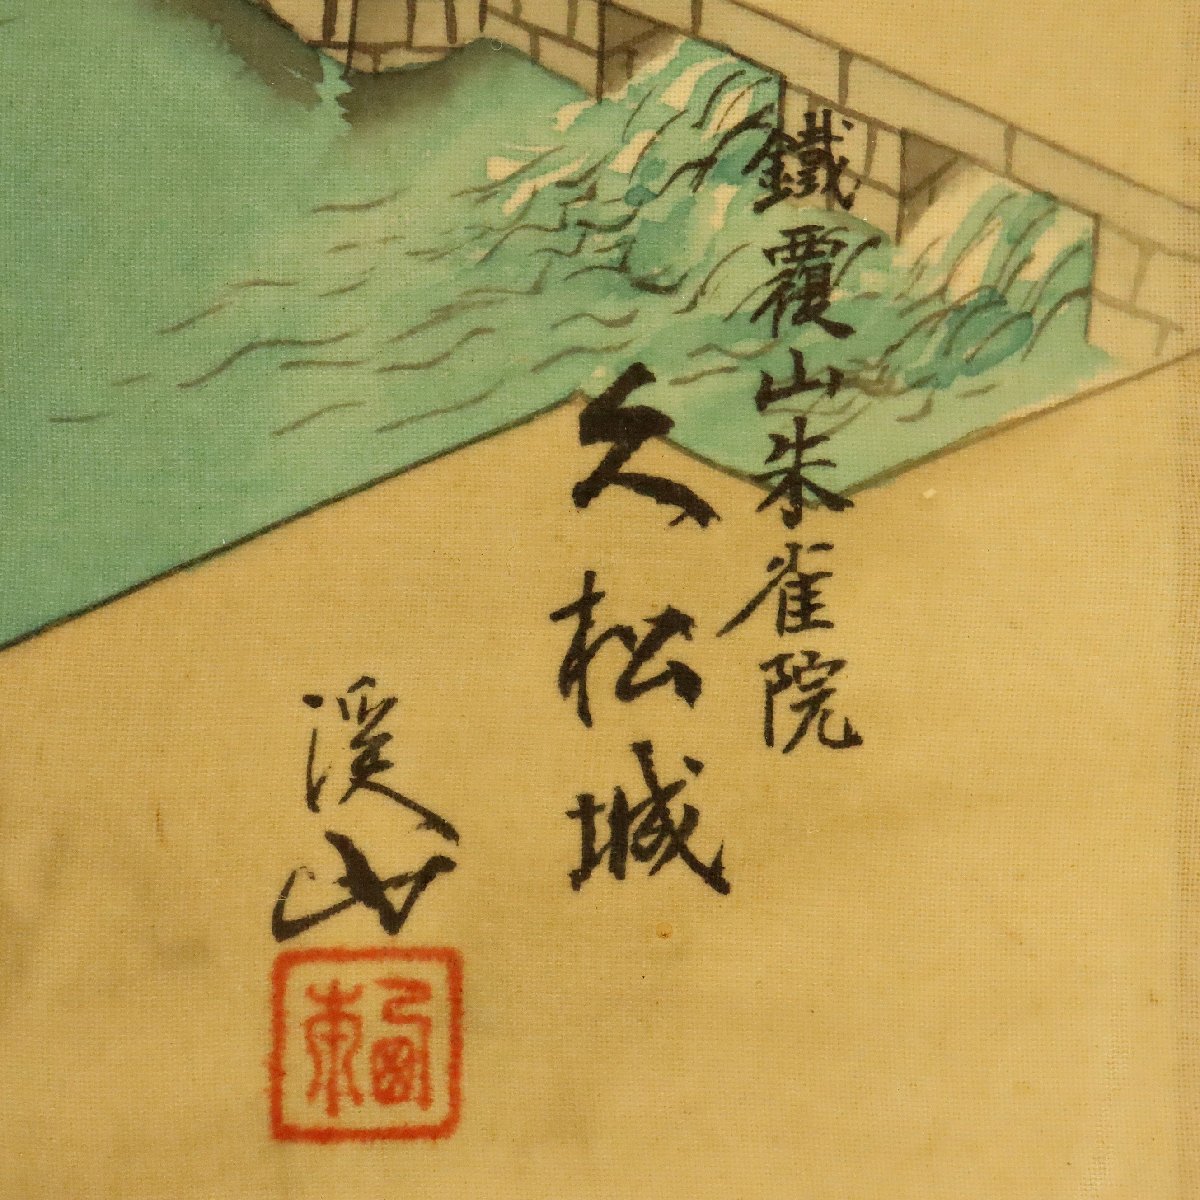 鐵覆山朱雀院
久松城
溪山